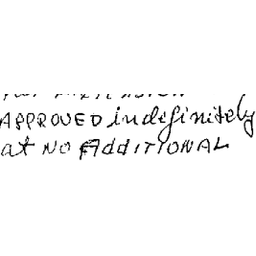 APPROVED indefinitely
at NO AddITIONAL